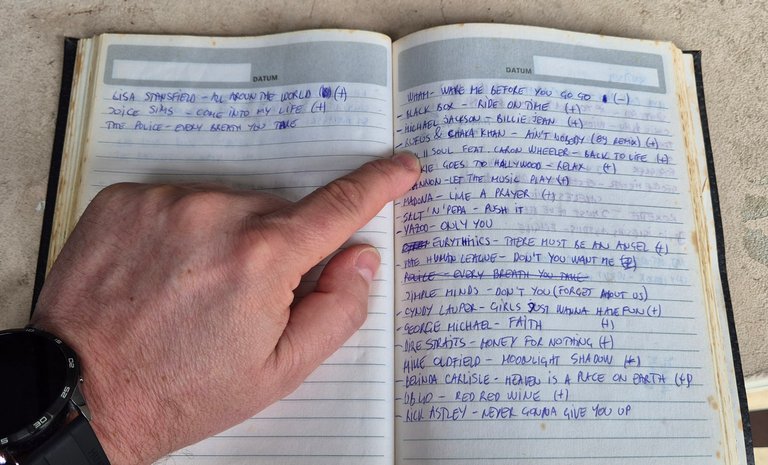 DATUM
LISA STANSFIELD - ALL AROUN THE WORLD (+)
JOICE SIMS - COME INTO MY LIFE (+)
THE POLICE - EVERY BREATH YOU TAKE
DATUM
WHAM - WAKE ME BEFORE YOU GO GO (-)
- BLACK BOX - RIDE ON TIME (+)
- MICHAEL JACKSON - BILLIE JEAN (+)
- RUFUS & CHAKA KHAN - AIN'T NOBODY (89 REMIX) (+)
II SOUL FEAT. CARON WHEELER - BACK TO LIFE (+)
KIE GOES TO HALLYWOOD - RELAX (+)
ANNON - LET THE MUSIC PLAY (+)
- MADONA - LIKE A PRAYER (+)
- SALT 'N' PEPA - PUSH IT
- YAZOO - ONLY YOU
EURYTHMICS - THERE MUST BE AN ANGEL (+)
- THE HUMAN LEAGUE - DON'T YOU WANT ME
- POLICE - EVERY BREATH YOU TAKE
SIMPLE MINDS - DON'T YOU (FORGET ABOUT US)
- CYNDY LAUPER - GIRLS JUST WANNA HAVE FUN (+)
- GEORGE MICHAEL - FAITH (+)
- DIRE STRAITS - MONEY FOR NOTHING (+)
- MIKE OLDFIELD - MOONLIGHT SHADOW (+)
- BELINDA CARLISLE - HEAVEN IS A PLACE ON EARTH (+)
- UB40 - RED RED WINE (+)
- RICK ASTLEY - NEVER GONNA GIVE YOU UP